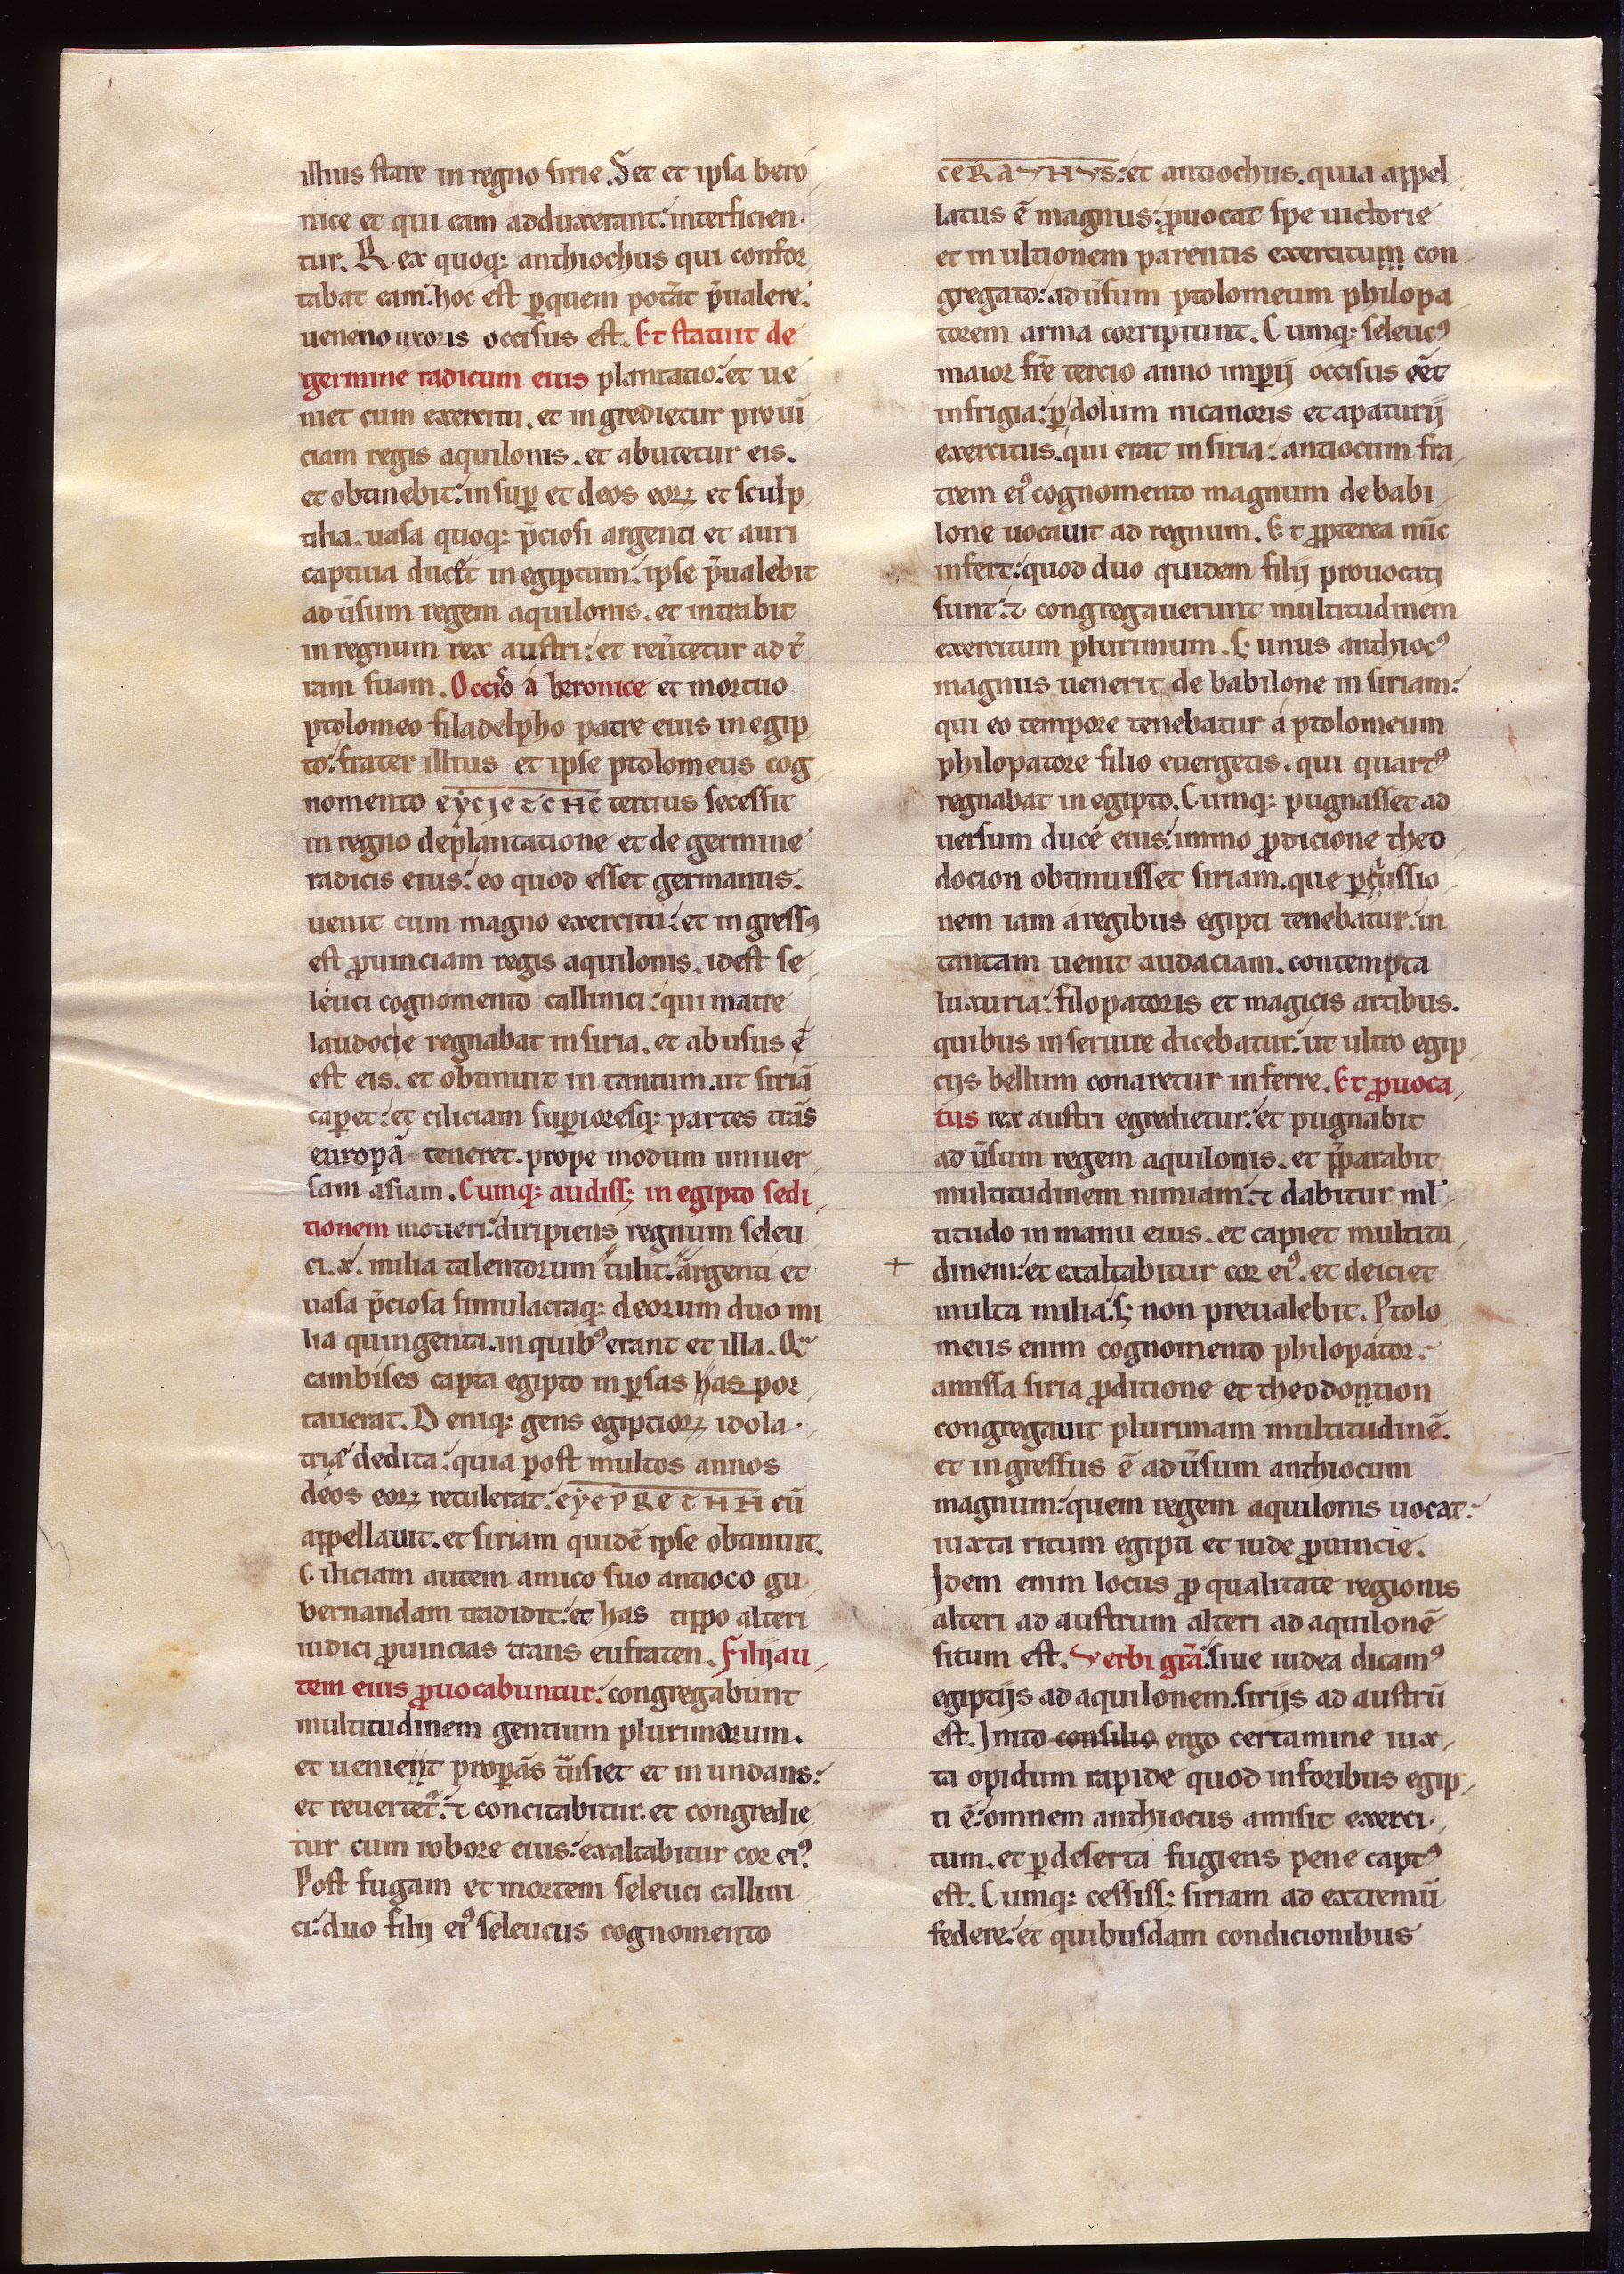 illius stare in regno sirie. Set et ipsa bero
nice et qui eam adduxerant: interficien
tur. Rex quoq; anthiochus qui confor
tabat eam: hoc est ꝑquem pot̄at p̄ualere:
ueneno uxoris occisus est. Et statuit de
germine radicum eius plantatio: et ue
niet cum exercitu. et ingredietur proui
ciam regis aquilonis. et abutetur eis.
et obtinebit: insuꝑ et deos eoꝝ et sculp
tilia. uasa quoq; p̄ciosi argenti et auri
captiua ducet in egiptum: ipse p̄ualebit
adūsum regem aquilonis. et intrabit
in regnum rex austri: et reūtetur ad t̄
ram suam. Occiso á beronice et mortuo
ptolomeo filadelpho patre eius in egip
to: frater illius et ipse ptolomeus cog
nomento eycjetcHc tercius secessit
in regno deplantatione et de germine
radicis eius: eo quod esset germanus.
uenit cum magno exercitu: et ingressꝰ
est ꝓuinciam regis aquilonis. idest se
leuci cognomento callinici: qui matre
laudocie regnabat in siria. et abusus ē
est eis. et obtinuit in tantum. ut siriā
caꝑet: et ciliciam suꝑioresq; partes trās
europā teneret. prope modum uniuer
sam asiam. Cumq; audiss; in egipto sedi
tionem moueri: diripiens regnum seleu
ci. xl. milia talentorum tulit: argenti et
uasa p̄ciosa simulacraq; deorum duo mi
lia quingenta. in quibꝰ erant et illa. Qͣ
cambises capta egipto in ꝑsas has por
tauerat. Denique; gens egiptioꝝ idola
trie dedita: quia post multos annos
deos eoꝝ retulerat: eyePRetHH eū
appellauit. et siriam quidē ipse obtinuit.
Ciliciam autem amico suo antioco gu
bernandam tradidit: et has tippo alteri
iudici ꝓuincias trans eufraten. Filij au
tem eius ꝓuocabuntur: congregabunt
multitudinem gentium plurimorum.
et uenient proꝑās tͣnsiet et inundans:
et reuertet̉: ⁊ concitabitur. et congredie
tur cum robore eius: exaltabitur cor eiꝰ
Post fugam et mortem seleuci callini
ci: duo filij eiꝰ seleucus cognomento
ceRaVHVs: et antiochus. quia appel
latus ē magnus: ꝓuocat spe uictorie
et in ultionem parentis exercitum con
gregato: adūsum ptolomeum philopa
torem arma corripiunt. Cumq; seleucꝰ
maior fr̄e tercio anno imꝑij occisus eēt
infrigia: ꝑ dolum nicanoris et apaturij
exercitus. qui erat in siria: antiocum fra
trem eiꝰ cognomento magnum de babi
lone uocauit ad regnum. Et ꝓpterea nūc
infert: quod duo quidem filij prouocati
sunt: ⁊ congregauerunt multitudinem
exercitum plurimum. S; unus anthiocꝰ
magnus uenerit de babilone in siriam:
qui eo tempore tenebatur á ptolomeum
philopatore filio euergetis. qui quartꝰ
regnabat in egipto. Cumq; pugnasset ad
uersum ducé eius: immo ꝓdicione theo
docion obtinuisset siriam. que ꝑcussio
nem iam a regibus egipti tenebatur: in
tantam uenit audaciam. contempta
luxuria: filopatoris et magicis artibus.
quibus inseruire dicebatur: ut ultro egip
cijs bellum conaretur inferre. Et ꝓuoca
tus rex austri egredietur: et pugnabit
adūsum regem aquilonis. et p̄parabit
multitudinem nimiam: ⁊ dabitur ml̄
titudo in manu eius. et capiet multitu
dinem: et exaltabitur cor eiꝰ. et deiciet
multa milia: s; non preualebit. Ptolo
meus enim cognomento philopator:
amissa siria ꝓditione et theodontion
congregauit plurimam multitudinē.
et ingressus ē adūsum anthiocum
magnum: quem regem aquilonis uocat:
iuxta ritum egipti et iude ꝓuincie.
Idem enim locus ꝓ qualitate regionis
alteri ad austrum alteri ad aquilonē
situm est. Verbi grā: siue iudea dicamꝰ
egiptijs ad aquilonem. sirijs ad austrū
est. Inito consilio ergo certamine iux
ta opidum rapide quod in foribus egip
ti ē: omnem anthiocus amisit exerci
tum. et ꝑ deserta fugiens pene captꝰ
est. Cumq; cessiss; siriam ad extremū
federe: et quibusdam condicionibus